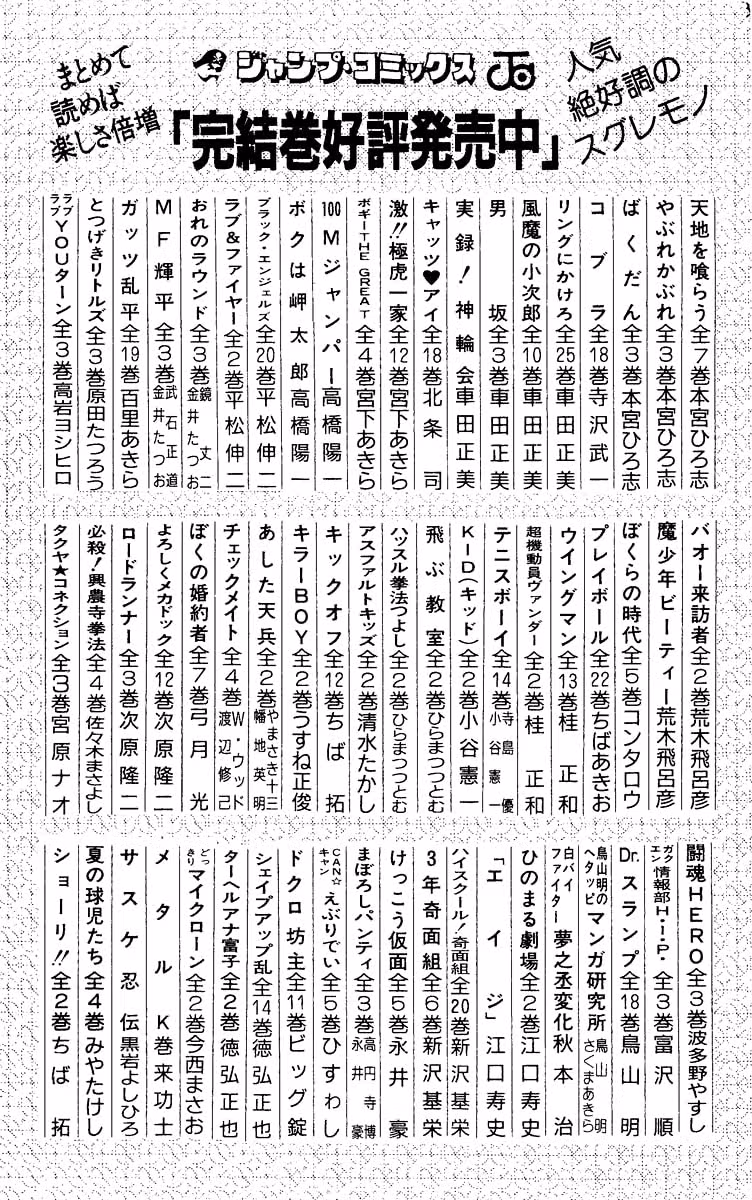 人気
絶好調の
スグレモノ
ジャンプ・コミックス
「完結巻好評発売中」
まとめて
読めば
楽しさ倍増
天地を喰らう全7巻本宮ひろ志
やぶれかぶれ全3巻本宮ひろ志
ばくだん全3巻本宮ひろ志
コブラ全18巻寺沢武一
リングにかけろ全25巻車田正美
風魔の小次郎全10巻車田正美
男坂全3巻車田正美
実録!神輪会車田正美
キャッツ♥アイ全18巻北条司
激!!極虎一家全12巻宮下あきら
ボギーTHE GREAT全4巻宮下あきら
100Mジャンパー高橋陽一
ボクは岬太郎高橋陽一
ブラック・エンジェルズ全20巻平松伸二
ラブ&ファイヤー全2巻平松伸二
おれのラウンド全3巻鏡丈二 金井たつお
MF輝平全3巻武石正道 金井たつお
ガッツ乱平全19巻百里あきら
とつげきリトルズ全3巻原田たつろう
ラブラブYOUターン全3巻高岩ヨシヒロ
バオー来訪者全2巻荒木飛呂彦
魔少年ビーティー荒木飛呂彦
ぼくらの時代全5巻コンタロウ
プレイボール全22巻ちばあきお
ウイングマン全13巻桂正和
超機動員ヴァンダー全2巻桂正和
テニスボーイ全14巻寺島優 小谷憲一
KID(キッド)全2巻小谷憲一
飛ぶ教室全2巻ひらまつつとむ
ハッスル拳法つよし全2巻ひらまつつとむ
アスファルトキッズ全2巻清水たかし
キックオフ全12巻ちば拓
キラーBOY全2巻うすね正俊
あした天兵全2巻やまさき十三 幡地英明
チェックメイト全4巻W・ウッド 渡辺修己
ぼくの婚約者全7巻弓月光
よろしくメカドック全12巻次原隆二
ロードランナー全3巻次原隆二
必殺!興農寺拳法全4巻佐々木まさよし
タクヤ★コネクション全3巻宮原ナオ
闘魂HERO全3巻波多野やすし
ガクエン情報部H・I・P・全3巻富沢順
Dr.スランプ全18巻鳥山明
鳥山明のヘタッピマンガ研究所鳥山明 さくまあきら
白バイファイター夢之丞変化秋本治
ひのまる劇場全2巻江口寿史
「エイジ」江口寿史
ハイスクール!奇面組全20巻新沢基栄
3年奇面組全6巻新沢基栄
けっこう仮面全5巻永井豪
まぼろしパンティ全3巻高円寺博 永井豪
CAN☆キャンえぶりでい全5巻ひすわし
ドクロ坊主全11巻ビッグ錠
シェイプアップ乱全14巻徳弘正也
ターヘルアナ富子全2巻徳弘正也
どっきりマイクローン全2巻今西まさお
メタルK巻来功士
サスケ忍伝黒岩よしひろ
夏の球児たち全4巻みやたけし
ショーリ!!全2巻ちば拓